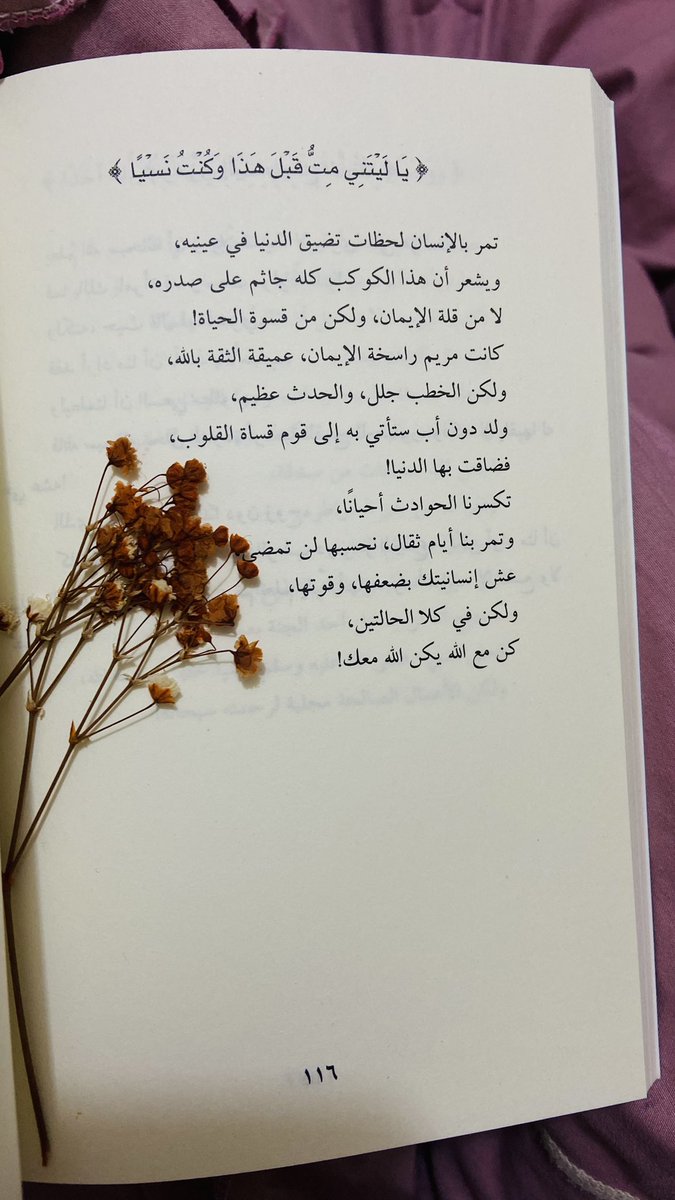 ﴿ يَا لَيْتَنِي مِتُّ قَبْلَ هَذَا وَكُنْتُ نَسْيًا ﴾
تمر بالإنسان لحظات تضيق الدنيا في عينيه،
ويشعر أن هذا الكوكب كله جاثم على صدره،
لا من قلة الإيمان، ولكن من قسوة الحياة!
كانت مريم راسخة الإيمان، عميقة الثقة بالله،
ولكن الخطب جلل، والحدث عظيم،
ولد دون أب ستأتي به إلى قوم قساة القلوب،
فضاقت بها الدنيا!
تكسرنا الحوادث أحيانًا،
وتمر بنا أيام ثقال، نحسبها لن تمضي،
عش إنسانيتك بضعفها، وقوتها،
ولكن في كلا الحالتين،
كن مع الله يكن الله معك!
١١٦